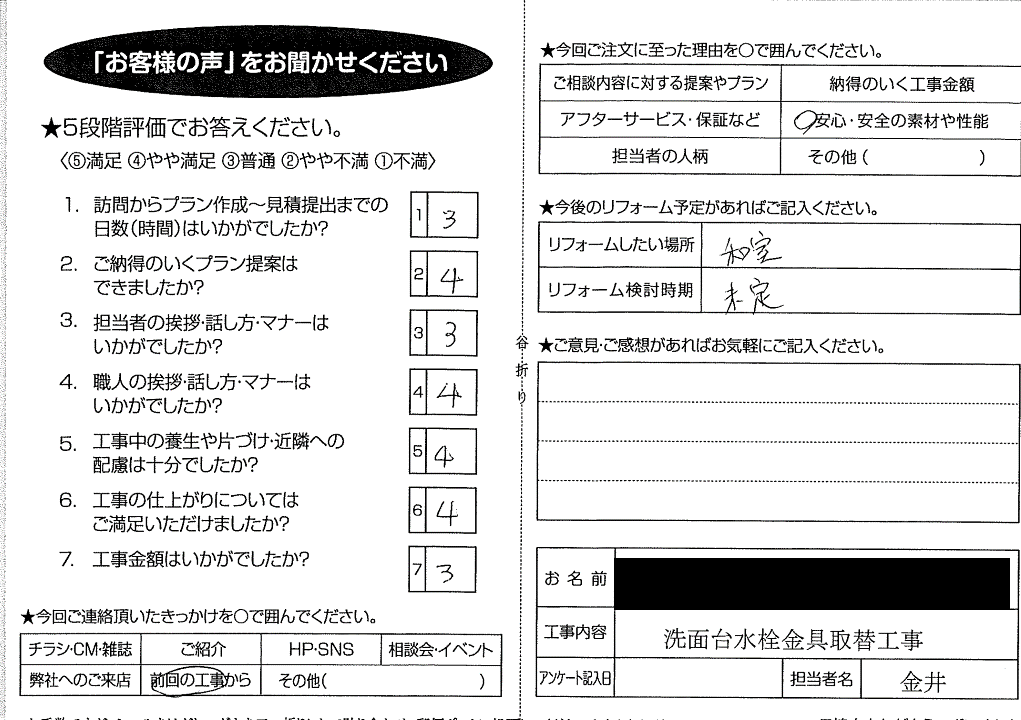 「お客様の声」をお聞かせください
★5段階評価でお答えください。
〈⑤満足 ④やや満足 ③普通 ②やや不満 ①不満〉
1. 訪問からプラン作成〜見積提出までの
日数(時間)はいかがでしたか?
1 3
2. ご納得のいくプラン提案は
できましたか?
2 4
3. 担当者の挨拶・話し方・マナーは
いかがでしたか?
3 3
4. 職人の挨拶・話し方・マナーは
いかがでしたか?
4 4
5. 工事中の養生や片づけ・近隣への
配慮は十分でしたか?
5 4
6. 工事の仕上がりについては
ご満足いただけましたか?
6 4
7. 工事金額はいかがでしたか?
7 3
★今回ご連絡頂いたきっかけを○で囲んでください。
チラシ・CM・雑誌 ご紹介 HP・SNS 相談会・イベント
弊社へのご来店 前回の工事から その他( )
谷折り
★今回ご注文に至った理由を○で囲んでください。
ご相談内容に対する提案やプラン 納得のいく工事金額
アフターサービス・保証など 安心・安全の素材や性能
担当者の人柄 その他( )
★今後のリフォーム予定があればご記入ください。
リフォームしたい場所 和室
リフォーム検討時期 未定
★ご意見・ご感想があればお気軽にご記入ください。
お名前
工事内容 洗面台水栓金具取替工事
アンケート記入日 担当者名 金井